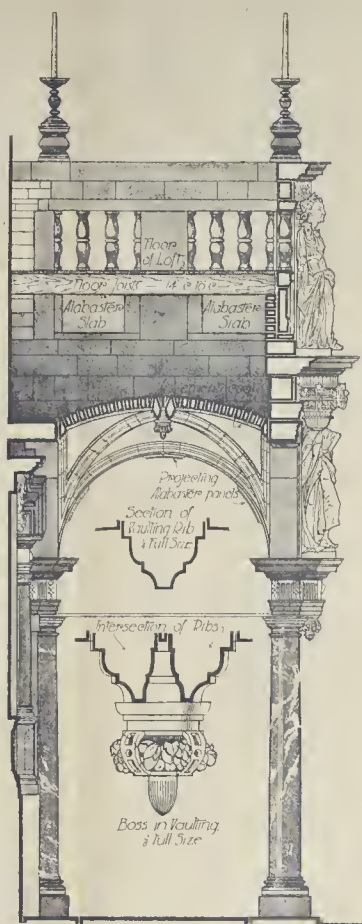 Floor
of Loft
Floor Joists — 14" c to c
Alabaster
Slab
Alabaster
Slab
Projecting
Alabaster panels
Section of
Vaulting Rib
Full Size
Intersection of Ribs
Boss in Vaulting.
Full Size